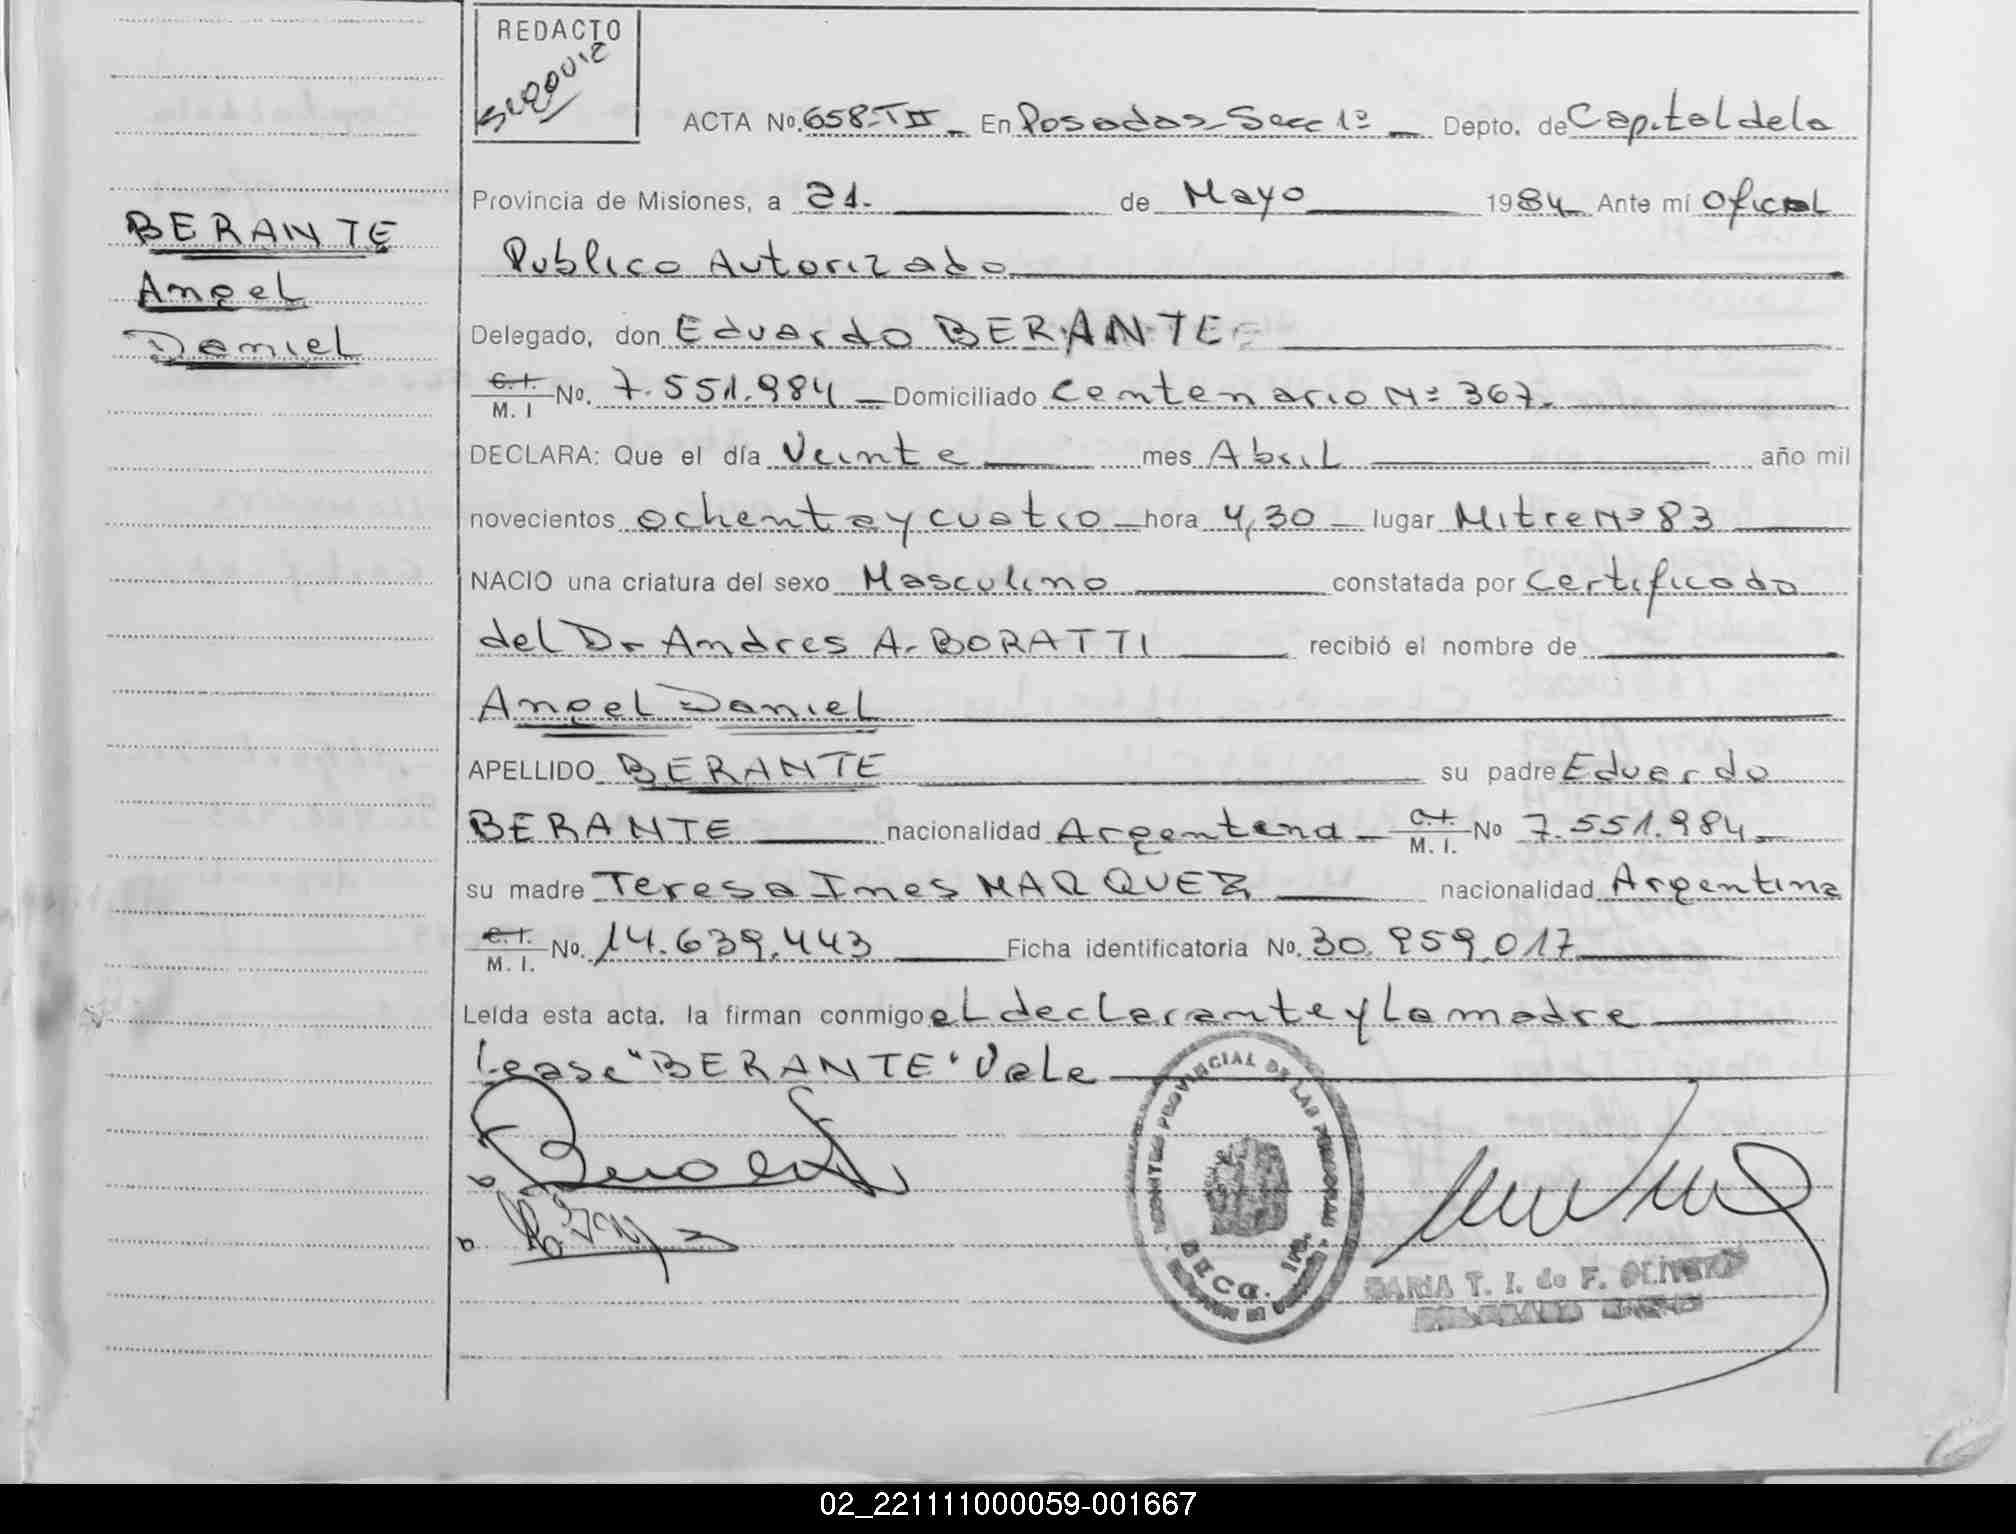 REDACTO
ACTA No. 658-T II - En Posadas - Secc 1ª - Depto. de Capital de la
Provincia de Misiones, a 21. de Mayo 1984 Ante mí Oficial
Publico Autorizado
BERANTE
Angel
Daniel
Delegado, don Eduardo BERANTE
C.I. M. I No. 7.551.984 - Domiciliado Centenario Nº 367.
DECLARA: Que el día Veinte mes Abril año mil
novecientos ochenta y cuatro - hora 4,30 - lugar Mitre Nº 83
NACIO una criatura del sexo Masculino constatada por Certificado
del Dr Andres A. BORATTI recibió el nombre de
Angel Daniel
APELLIDO BERANTE su padre Eduardo
BERANTE nacionalidad Argentina - C.I. M. I. No 7.551.984 -
su madre Teresa Ines MARQUEZ nacionalidad Argentina
C.I. M. I. No. 14.639.443 Ficha identificatoria No. 30.959.017
Leída esta acta. la firman conmigo el declarante y la madre
Lease "BERANTE" Vale
PROVINCIAL DE LAS PERSONAS
MARIA T. I. de F. OLIVETO
02_221111000059-001667